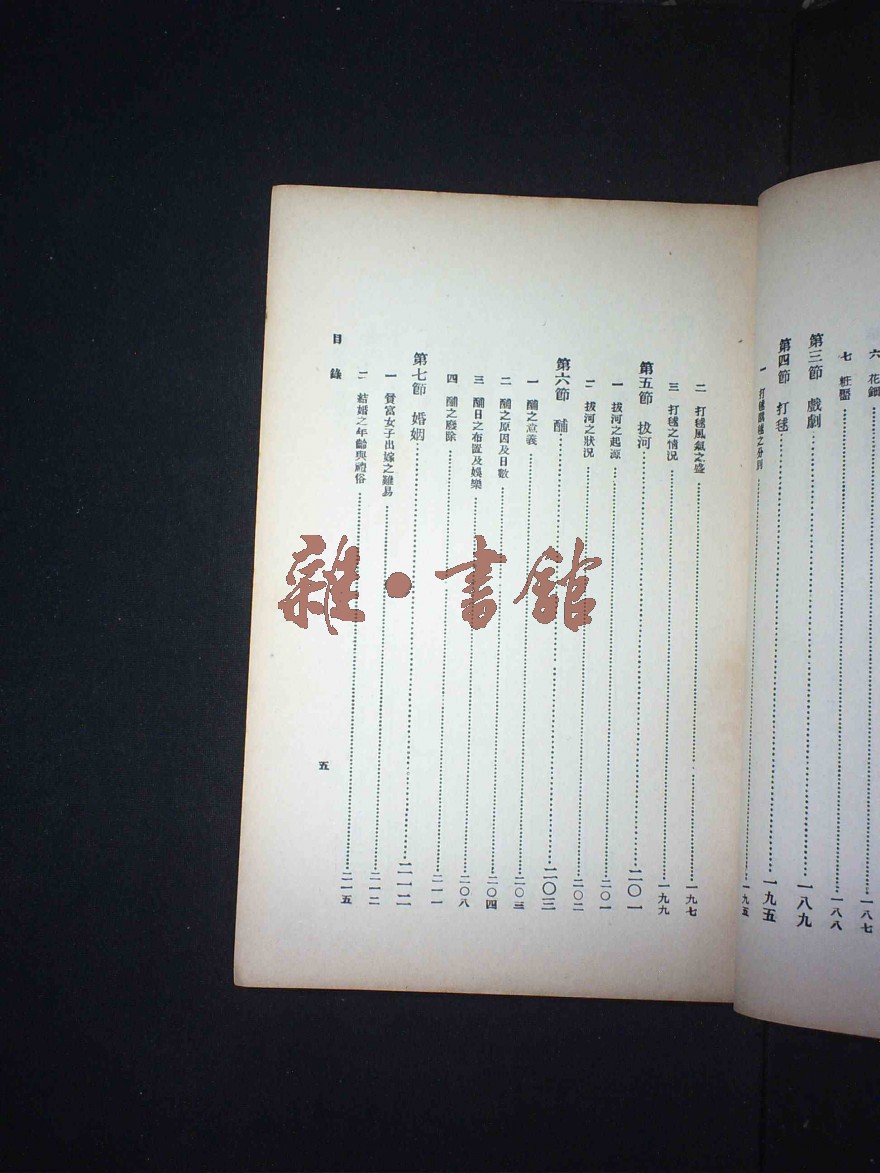 六 花鈿……一八七
七 粧靨……一八八
第三節 戲劇……一八九
第四節 打毬……一九五
一 打毬戲毬之分別……一九五
二 打毬風氣之盛……一九七
三 打毬之情況……一九九
第五節 拔河……二〇一
一 拔河之起源……二〇一
二 拔河之狀況……二〇二
第六節 酺……二〇三
一 酺之意義……二〇三
二 酺之原因及日數……二〇四
三 酺日之布置及娛樂……二〇八
四 酺之廢除……二一一
第七節 婚姻……二一二
一 貧富女子出嫁之難易……二一二
二 結婚之年齡與禮俗……二一五
目錄
五
雜·書館